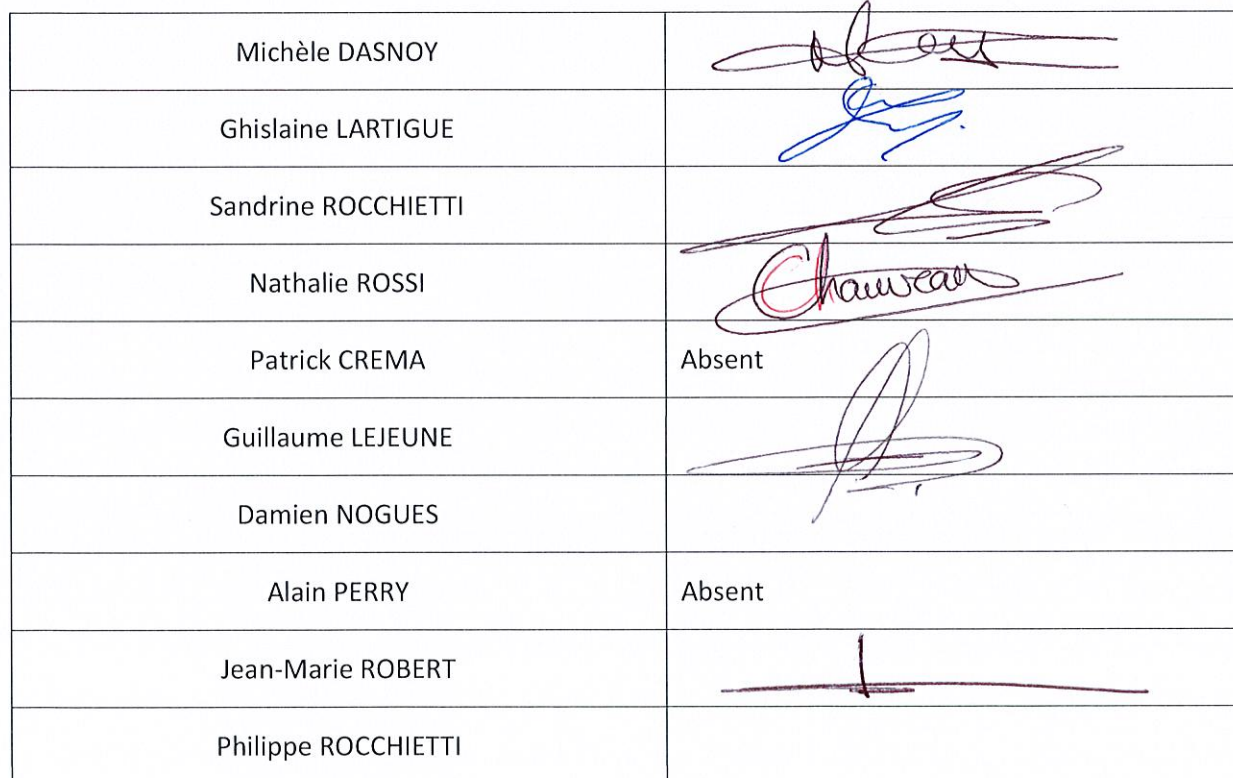 Michèle DASNOY
Ghislaine LARTIGUE
Sandrine ROCCHIETTI
Nathalie ROSSI Chauveau
Patrick CREMA Absent
Guillaume LEJEUNE
Damien NOGUES
Alain PERRY Absent
Jean-Marie ROBERT
Philippe ROCCHIETTI